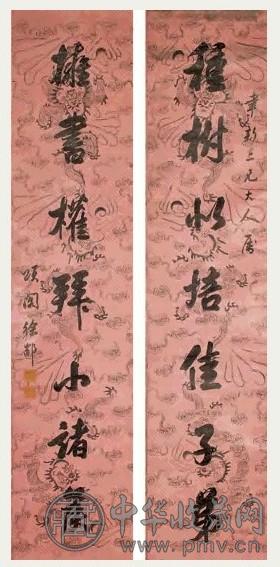 三兄大人屬
種樹似培佳子弟
擁書權拜小諸侯
頌閣徐郙
中华收藏网
www.pmv.cn